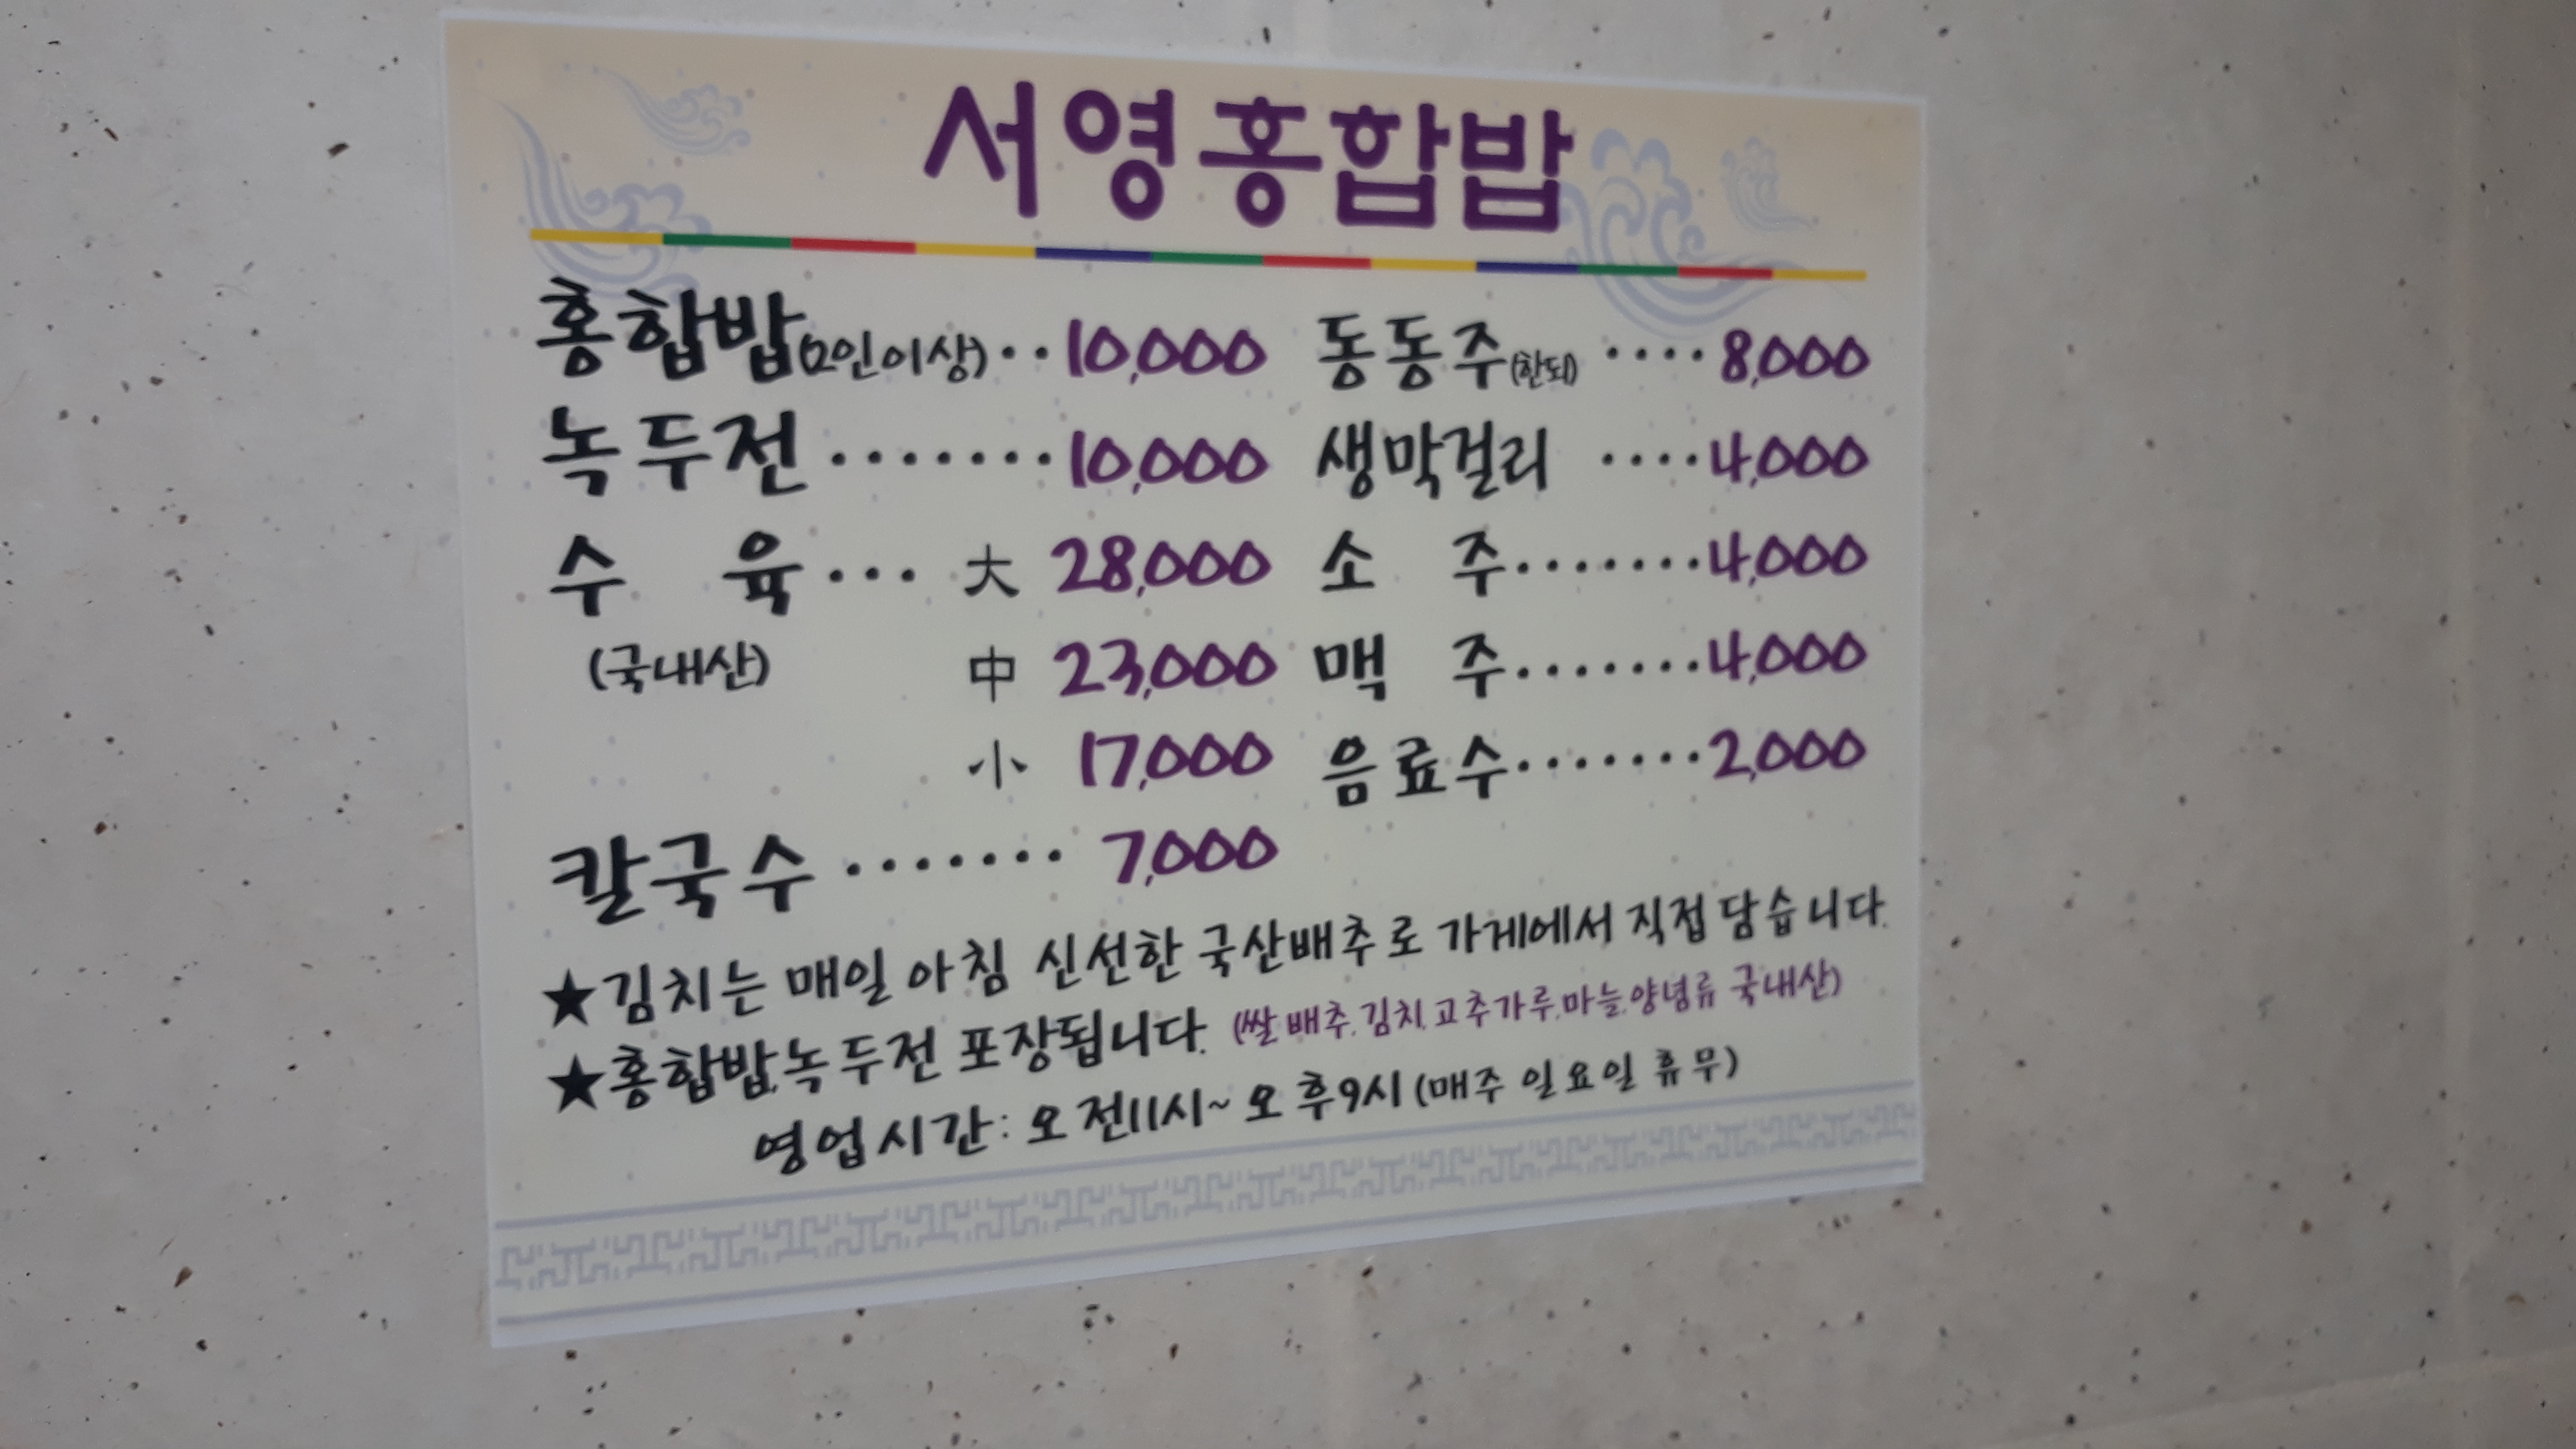 서영홍합밥
홍합밥(2인이상)··10,000
녹두전·······10,000
수 육··· 大 28,000
(국내산) 中 23,000
小 17,000
칼국수······· 7,000
동동주(한되) ····8,000
생막걸리 ····4,000
소 주·······4,000
맥 주·······4,000
음료수·······2,000
★김치는 매일 아침 신선한 국산배추로 가게에서 직접 담습니다.
★홍합밥,녹두전 포장됩니다. (쌀,배추,김치,고추가루,마늘,양념류 국내산)
영업시간: 오전11시~오후9시(매주 일요일 휴무)